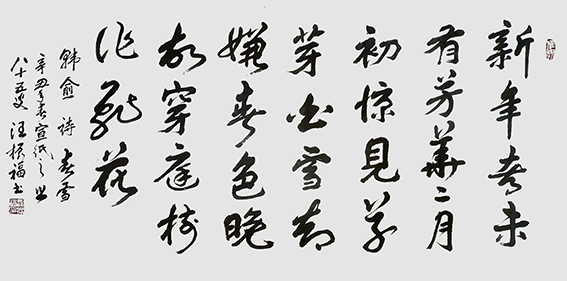 新年都未
有芳華二月
初惊見草
芽白雪却
嫌春色晚
故穿庭樹
作飛花
韓愈詩春雪
辛丑春宣紙之
八十五叟汪振福书